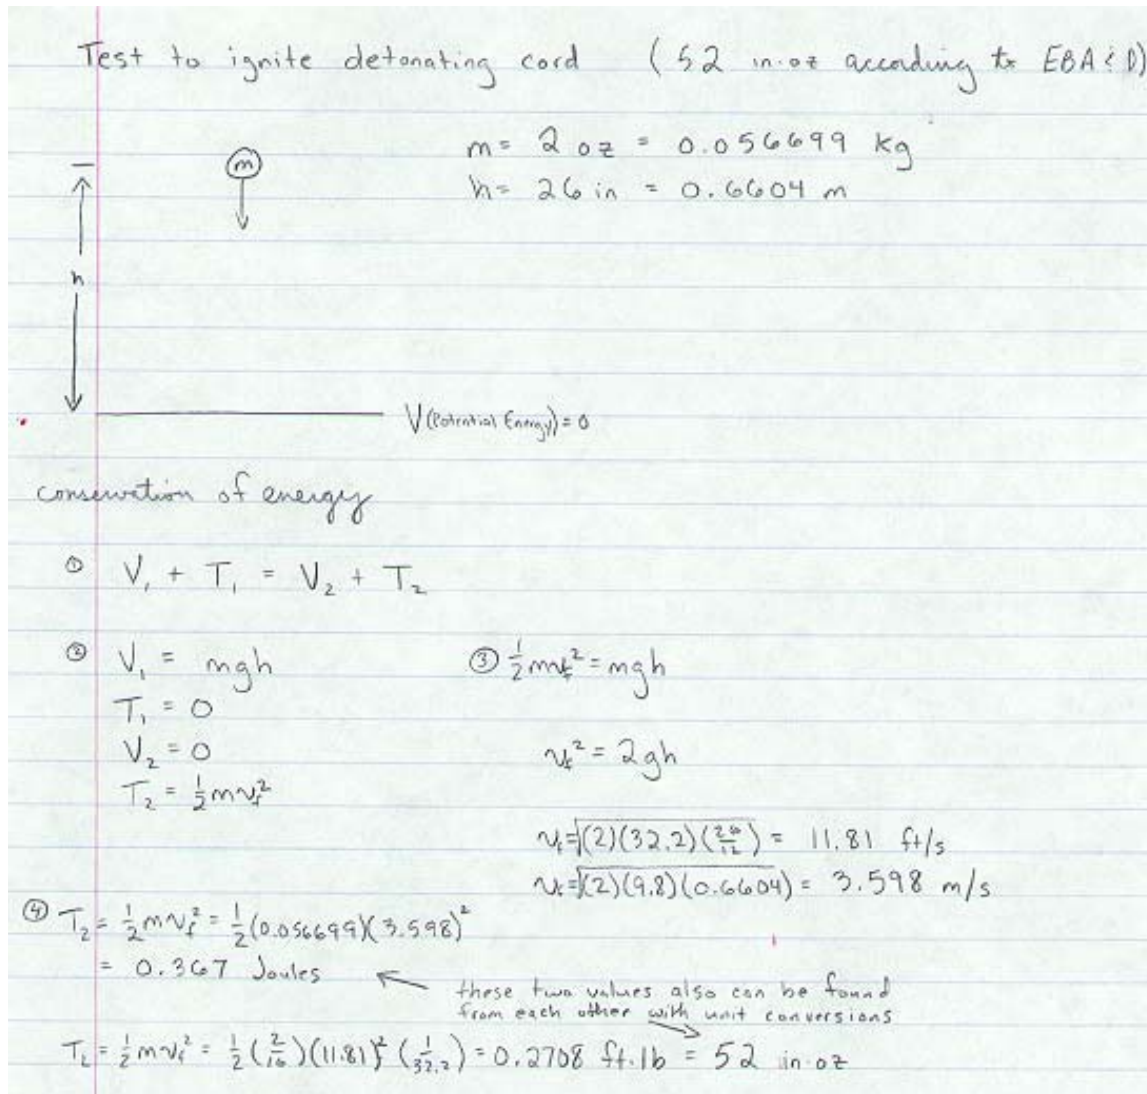 Test to ignite detonating cord (52 in·oz according to EBA&D)
m= 2 oz = 0.056699 kg
h= 26 in = 0.6604 m
m
h
V (Potential Energy) = 0
conservation of energy
① V₁ + T₁ = V₂ + T₂
② V₁ = mgh
T₁ = 0
V₂ = 0
T₂ = ½mv_f²
③ ½mv_f² = mgh
v_f² = 2gh
v_f = √(2)(32.2)(26/12) = 11.81 ft/s
v_f = √(2)(9.8)(0.6604) = 3.598 m/s
④ T₂ = ½mv_f² = ½(0.056699)(3.598)²
= 0.367 Joules
these two values also can be found
from each other with unit conversions
T₂ = ½mv_f² = ½(2/16)(11.81)²(1/32.2) = 0.2708 ft·lb = 52 in·oz